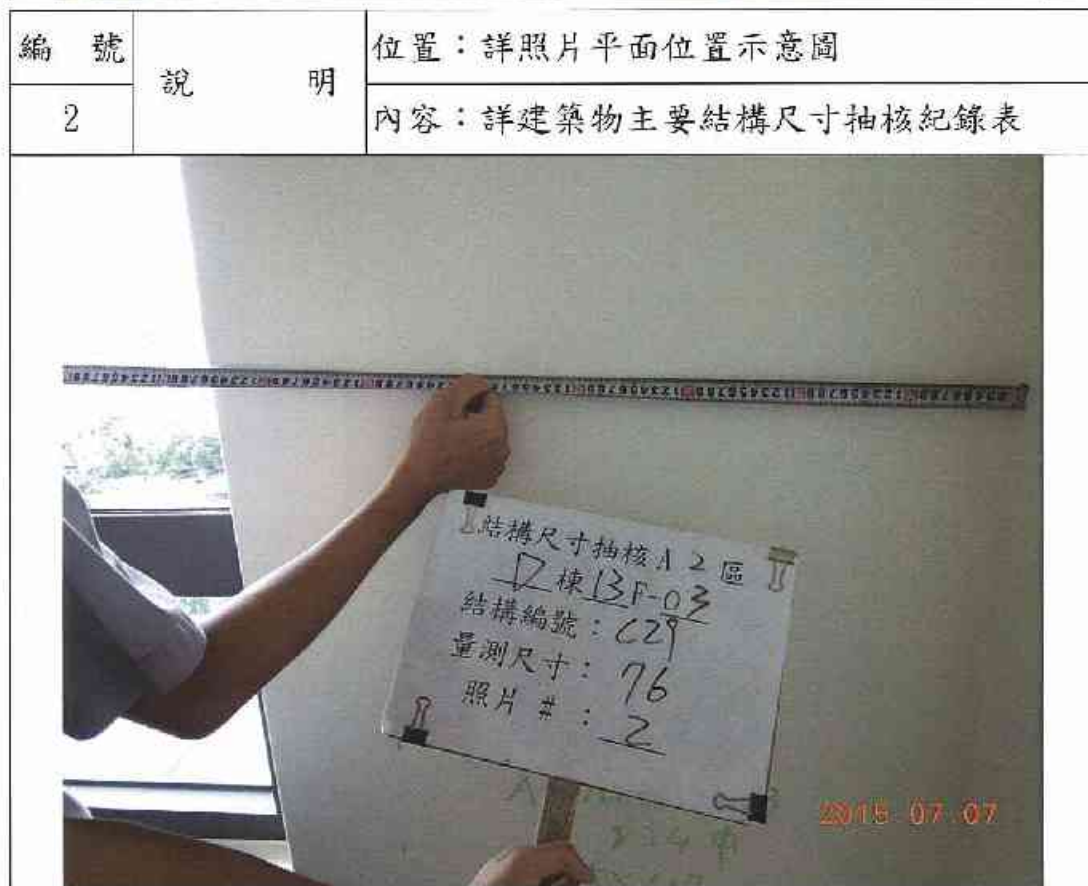 編 號
說 明
位置：詳照片平面位置示意圖
2
內容：詳建築物主要結構尺寸抽核紀錄表
結構尺寸抽核A2區
D棟13F-03
結構編號：C29
量測尺寸：76
照片 #：2
2015 07 07